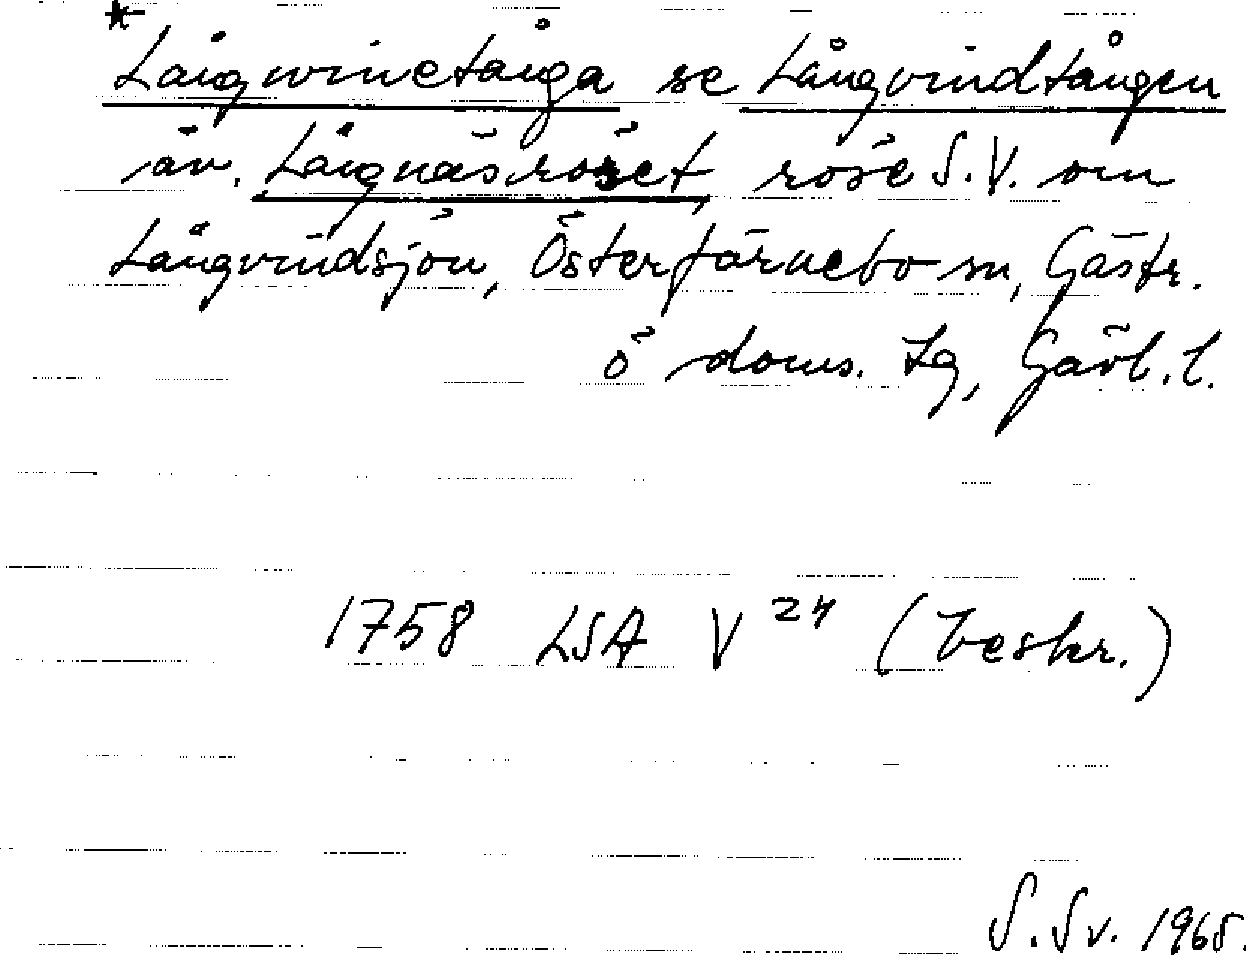 * Långwinetånga se Långvindtången
äv. Långnäsröset, röse S.V. om
Långvindsjön, Österfärnebo sn, Gästr.
ö doms. Lg, Gävl. l.
1758 LSA V 24 (beskr.)
S. Sv. 1965.